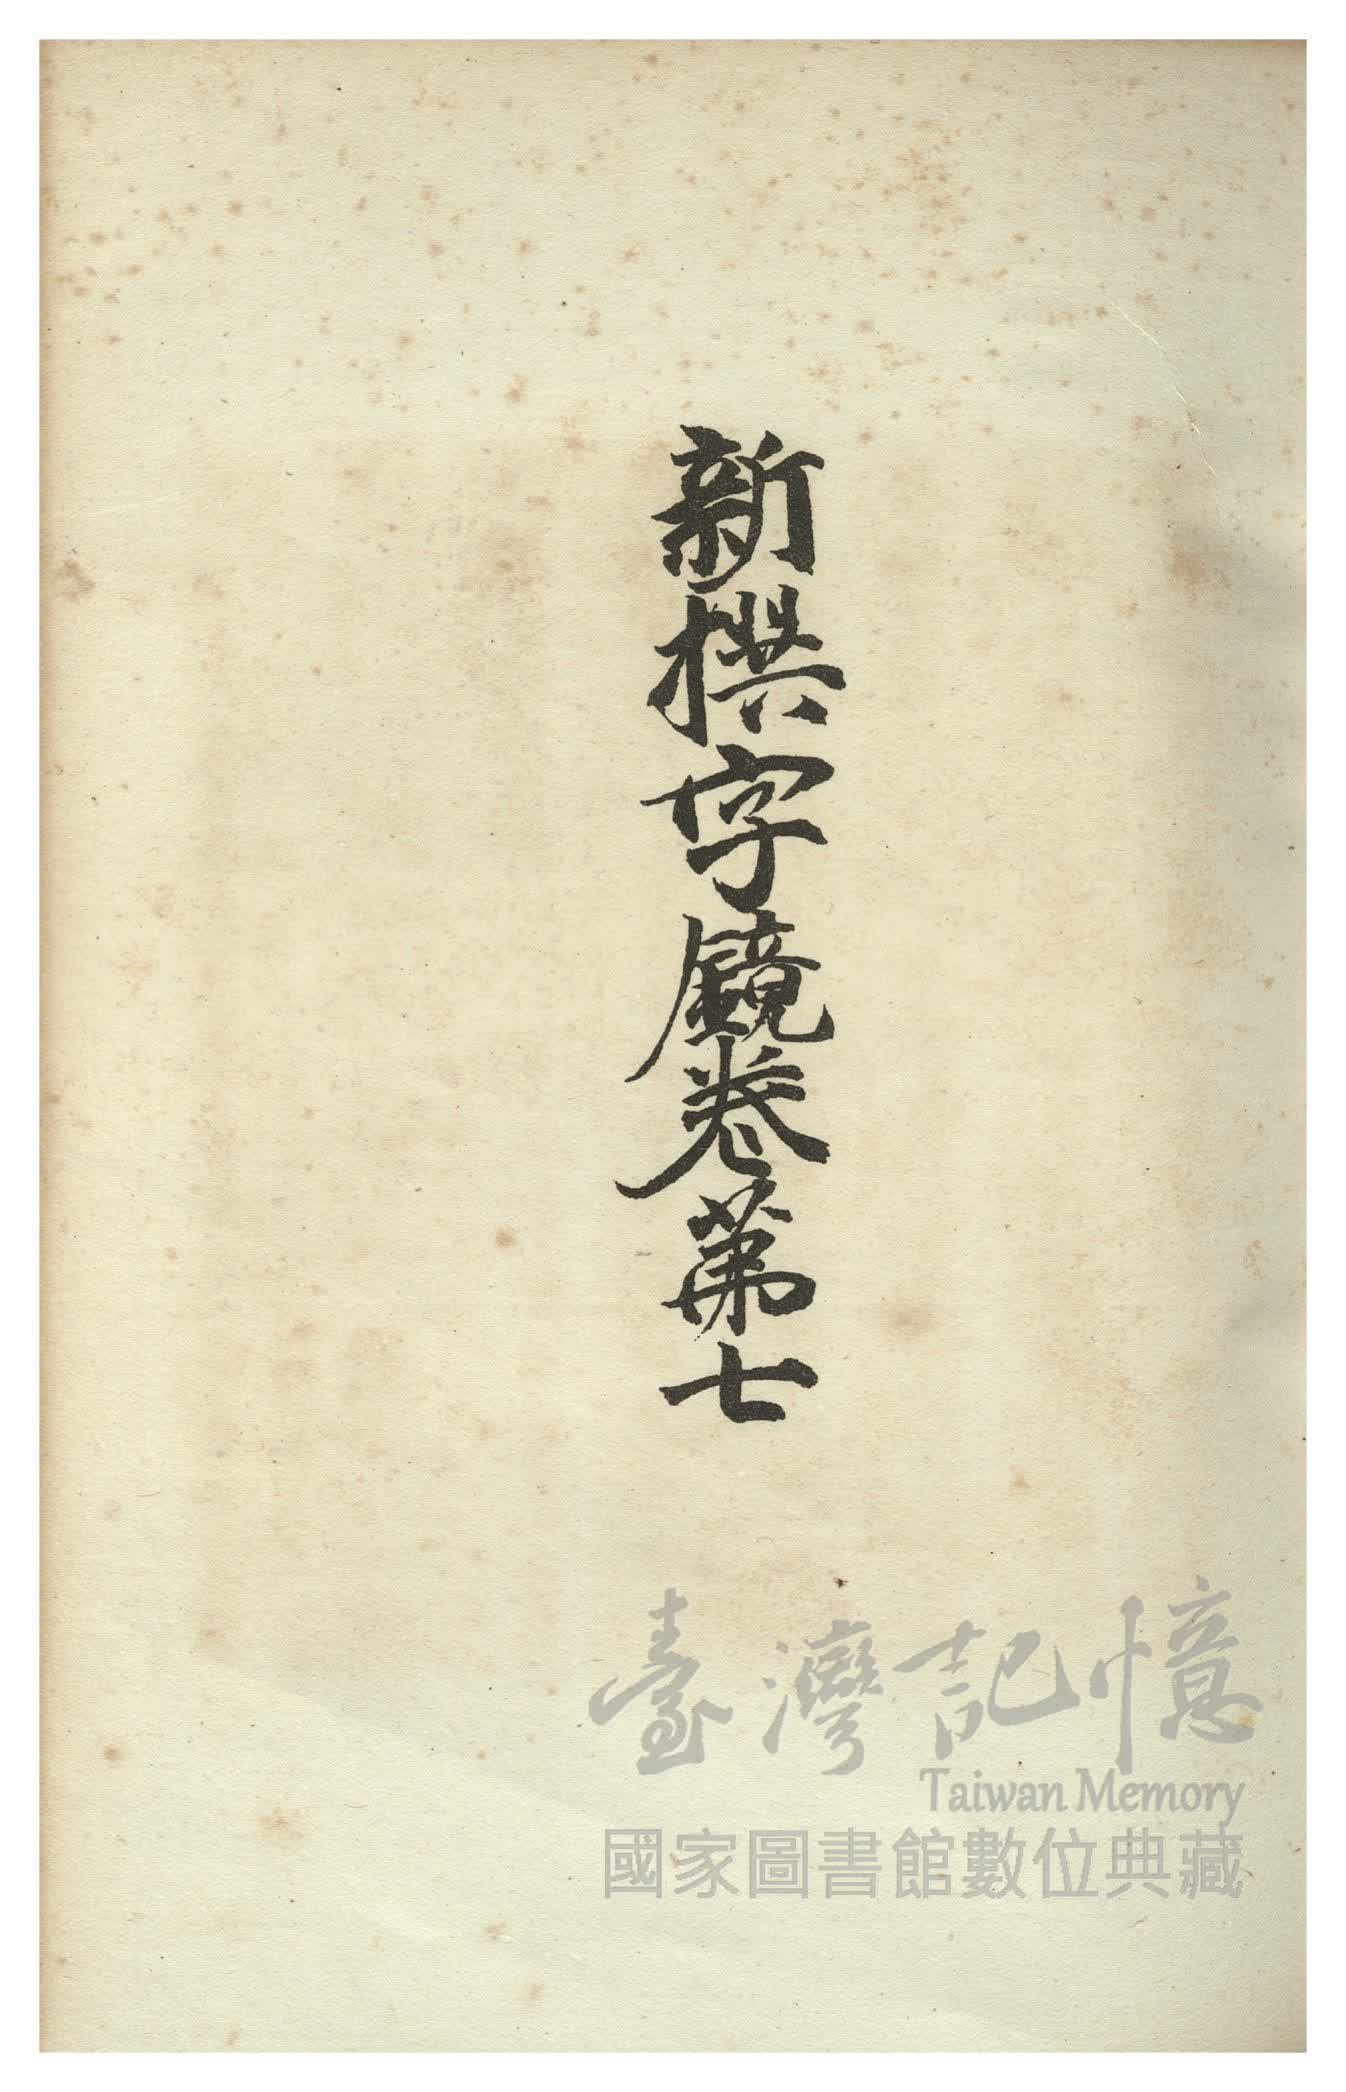 新撰字鏡卷第七
臺灣記憶
Taiwan Memory
國家圖書館數位典藏